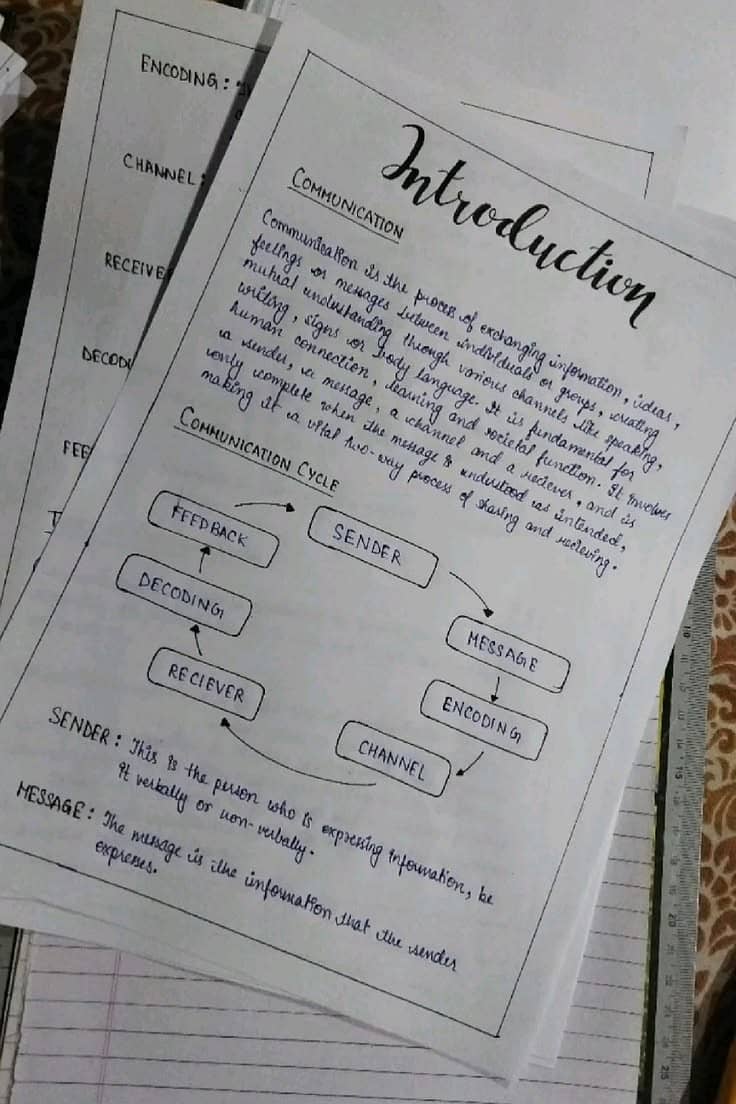 ENCODING :
CHANNEL :
RECEIVE
DECODI
FEE
Introduction
COMMUNICATION
Communication is the process of exchanging information, ideas,
feelings or messages between individuals or groups, creating
mutual understanding through various channels like speaking,
writing, signs or body language. It is fundamental for
human connection, learning and societal function. It involves
a sender, a message, a channel and a reciever, and is
only complete when the message is understood as intended,
making it a vital two-way process of sharing and recieving.
COMMUNICATION CYCLE
FEEDBACK
SENDER
DECODING
MESSAGE
RECIEVER
ENCODING
CHANNEL
SENDER : This is the person who is expressing information, be
it verbally or non-verbally.
MESSAGE : The message is the information that the sender
expresses.